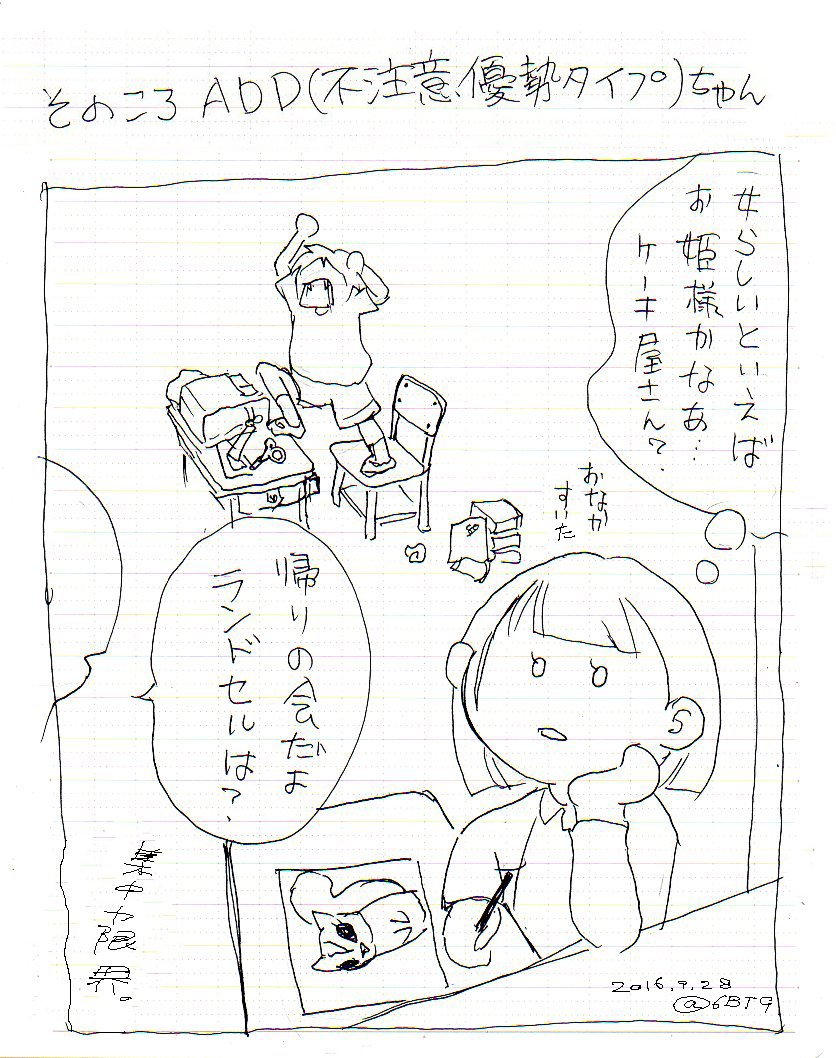 そのころADD(不注意優勢タイプ)ちゃん
女らしいといえば
お姫様かなあ…
ケーキ屋さん?
おなか
すいた
帰りの会だよ
ランドセルは?
集中力限界。
2016.9.28
@6BT9